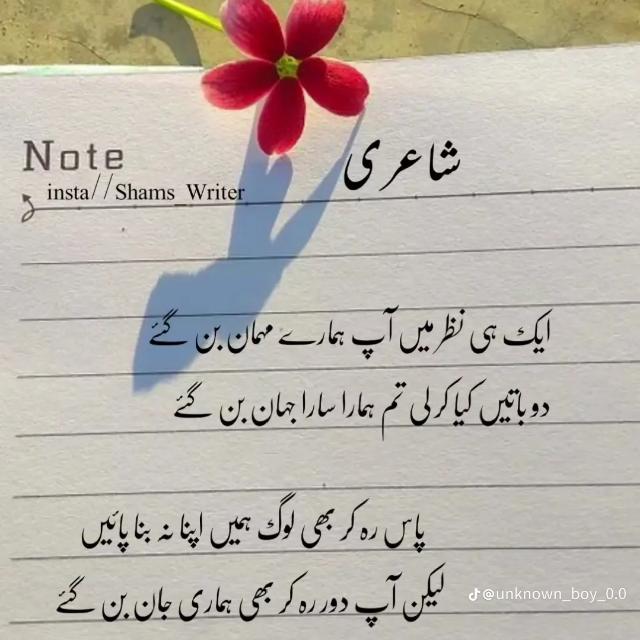 Note
insta//Shams_Writer
شاعری
ایک ہی نظر میں آپ ہمارے مہمان بن گئے
دو باتیں کیا کر لی تم ہمارا سارا جہان بن گئے
پاس رہ کر بھی لوگ ہمیں اپنا نہ بنا پائیں
لیکن آپ دور رہ کر بھی ہماری جان بن گئے
@unknown_boy_0.0